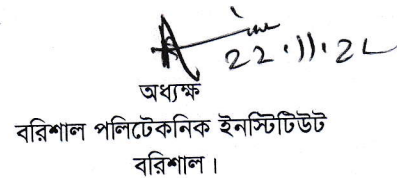 22.11.2২
অধ্যক্ষ
বরিশাল পলিটেকনিক ইনস্টিটিউট
বরিশাল।